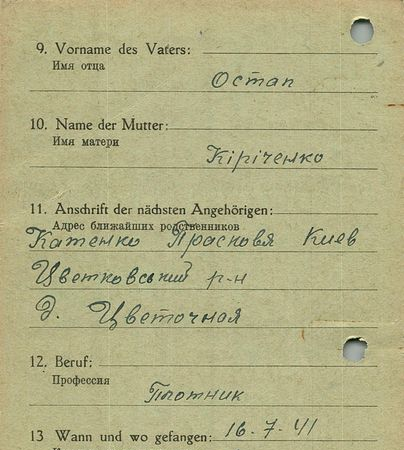 9. Vorname des Vaters:
Имя отца
Остап
10. Name der Mutter:
Имя матери
Кірiченко
11. Anschrift der nächsten Angehörigen:
Адрес ближайших родственников
Катенко Прасковя Киев
Цветковський р-н
д. Цветочная
12. Beruf:
Профессия
Плотник
13 Wann und wo gefangen: 16-7-41